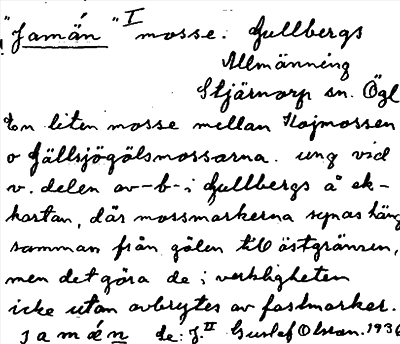 "Jamán" I mosse. Gullbergs
Allmänning
Stjärnorp sn. Ögl
En liten mosse mellan Kojmossen
o Gällsjögölsmossarna. ung vid
v. delen av -b- i Gullbergs å ek-
kartan, där mossmarkerna synas häng
samman från gölen till östgränsen,
men det göra de i verkligheten
icke utan avbrytes av fastmarker.
Jamán de: J. II Gustaf Olsson. 1936